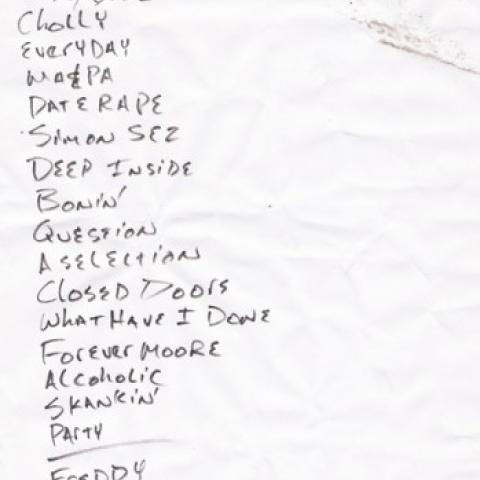 Cholly
EVERYDAY
MA&PA
DATE RAPE
SIMON SEZ
DEEP INSIDE
BONIN'
QUESTION
A SELECTION
CLOSED DOORS
WHAT HAVE I DONE
FOREVER MOORE
AlcoholiC
SKANKIN'
PARTY
FREDDY